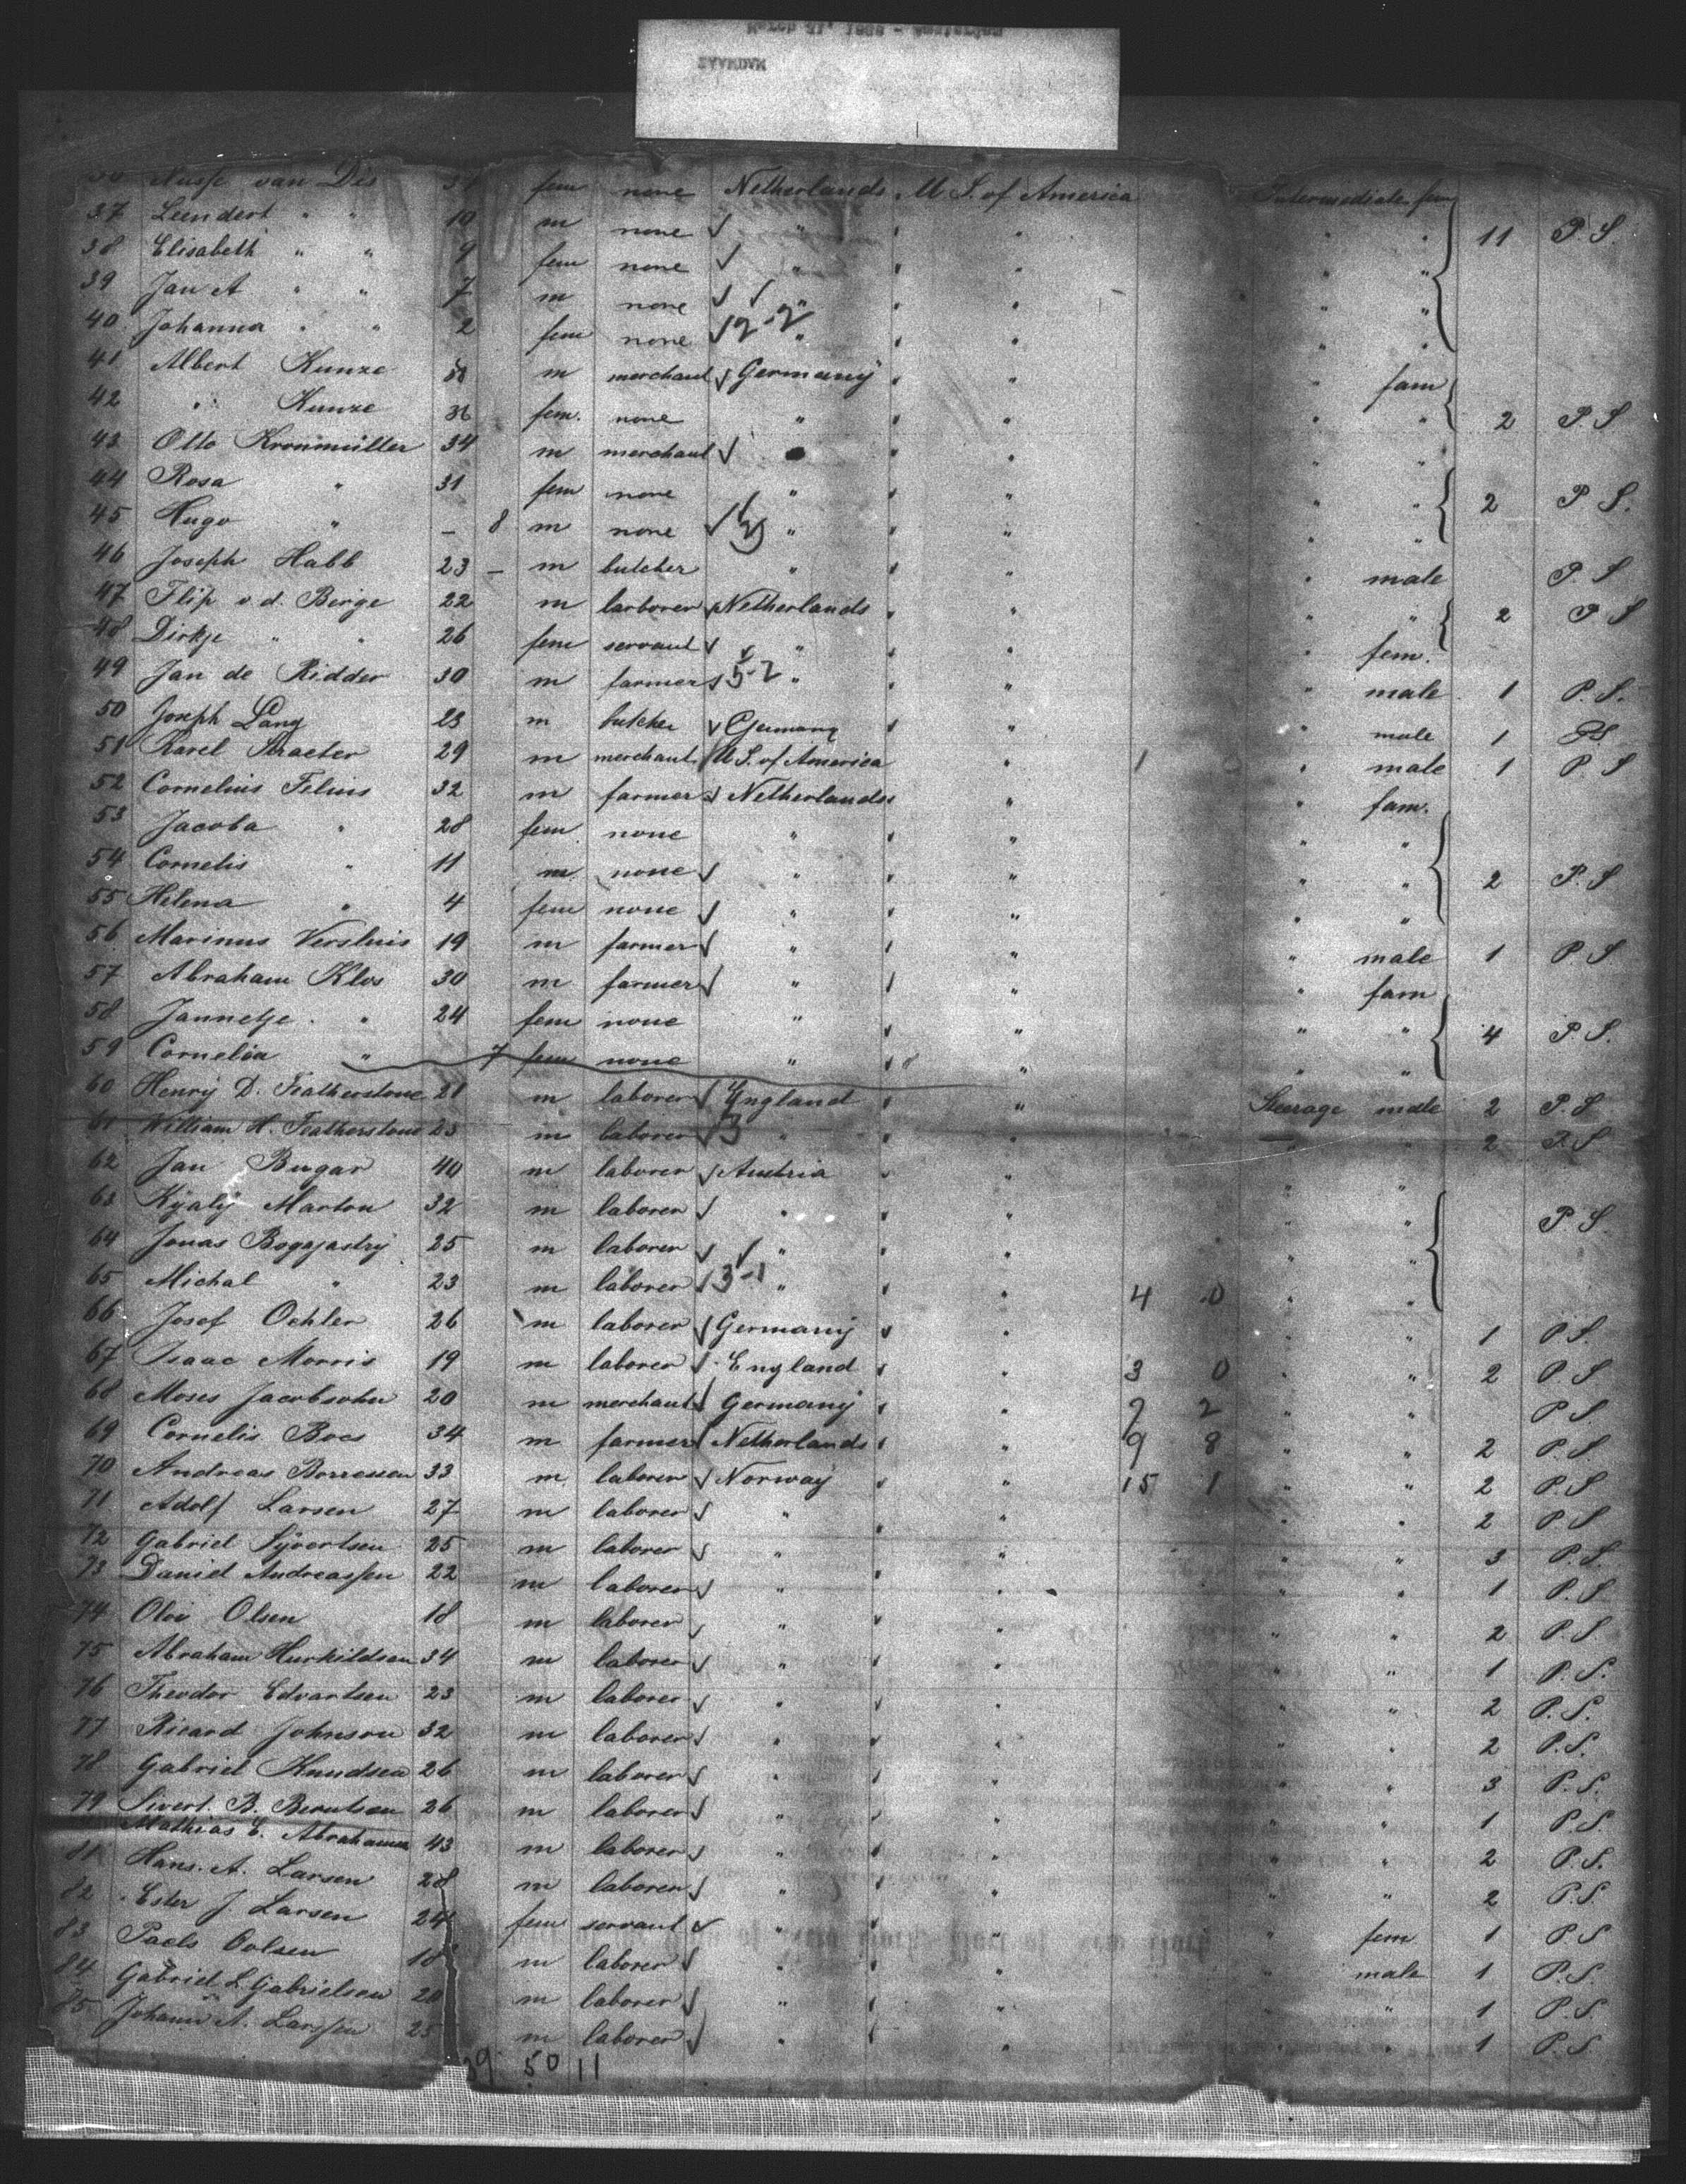 van Dis fem none Netherlands U S. of America Intermediate fem
37 Leendert " " 10 m none " " " " 11 P. S.
38 Elisabeth " " 9 fem none " " " "
39 Jan A " " 7 m none " " " "
40 Johanna " " 2 fem none 2-2 " " " "
41 Albert Kunze m merchant Germany " " fam
42 " Kunze fem. none " " " " 2 P S.
43 Otto Kronmüller 34 m merchant " " "
44 Rosa " 31 fem none " " " " 2 P S.
45 Hugo " - 8 m none " " " "
46 Joseph Habb 23 - m butcher " " " male P. S
47 Flip v. d. Berge 22 m larborer Netherlands " " " 2 P S
48 Dirkje " " 26 fem servant " " " fem.
49 Jan de Ridder 30 m farmer 5-2 " " " male 1 P. S.
50 Joseph Lang 23 m butcher Germany " male 1 PS
51 Karel Straeter 29 m merchant U S. of America " 1 " male 1 P. S
52 Cornelius Felius 32 m farmer Netherlands " " fam.
53 Jacoba " 28 fem none " " " "
54 Cornelis " 11 m none " " " " 2 P. S
55 Helena " 4 fem none " " " "
56 Marinus Versluis 19 m farmer " " " male 1 P. S
57 Abraham Klos 30 m farmer " " " fam
58 Jannetje " 24 fem none " " " " 4 P. S.
59 Cornelia " 7 fem none " " " "
60 Henry D. Featherstone 21 m laborer England " Steerage male 2 P. S
61 William H. Featherstone 23 m laborer 3 " " " 2 P. S
62 Jan Bugar 40 m laborer Austria " " "
63 Kijalij Marton 32 m laborer " " " " P S.
64 Jonas Bogajastrij 25 m laborer " " " "
65 Michal " 23 m laborer 3-1 " " 4 0 " "
66 Josef Oehler 26 m laborer Germany " " " 1 P S.
67 Isaac Morris 19 m laborer England " 3 0 " " 2 P S
68 Moses Jacobsohn 20 m merchant Germany " 2 2 " " P S.
69 Cornelis Boes 34 m farmer Netherlands " 9 8 " " 2 P. S.
70 Andreas Borressen 33 m laborer Norway " 15 1 " " 2 P. S
71 Adolf Larsen 27 m laborer " " " 2 P S
72 Gabriel Syvertsen 25 m laborer " " " " 3 P. S.
73 Daniel Andreassen 22 m laborer " " " " 1 P. S
74 Olai Olsen 18 m laborer " " " " 2 P. S.
75 Abraham Hurkildsen 34 m laborer " " " " 1 P. S.
76 Theodor Edvartsen 23 m laborer " " " " 2 P. S.
77 Ricard Johnson 32 m laborer " " " " 2 P. S.
78 Gabriel Knudsen 26 m laborer " " " " 3 P. S.
79 Sivert. B. Berntsen 26 m laborer " " " " 1 P. S.
Mathias E. Abrahamsen 43 m laborer " " " " 2 P. S.
81 Hans. A. Larsen 28 m laborer " " " " 2 P. S.
82 Ester J Larsen 24 fem servant " " " fem 1 P. S
83 Paels Oolsen 18 m laborer " " " male 1 P. S.
84 Gabriel L. Gabrielsen 20 m laborer " " " " 1 P. S.
85 Johann A. Larssen 25 m laborer " " " 1 P. S.
39 50 11